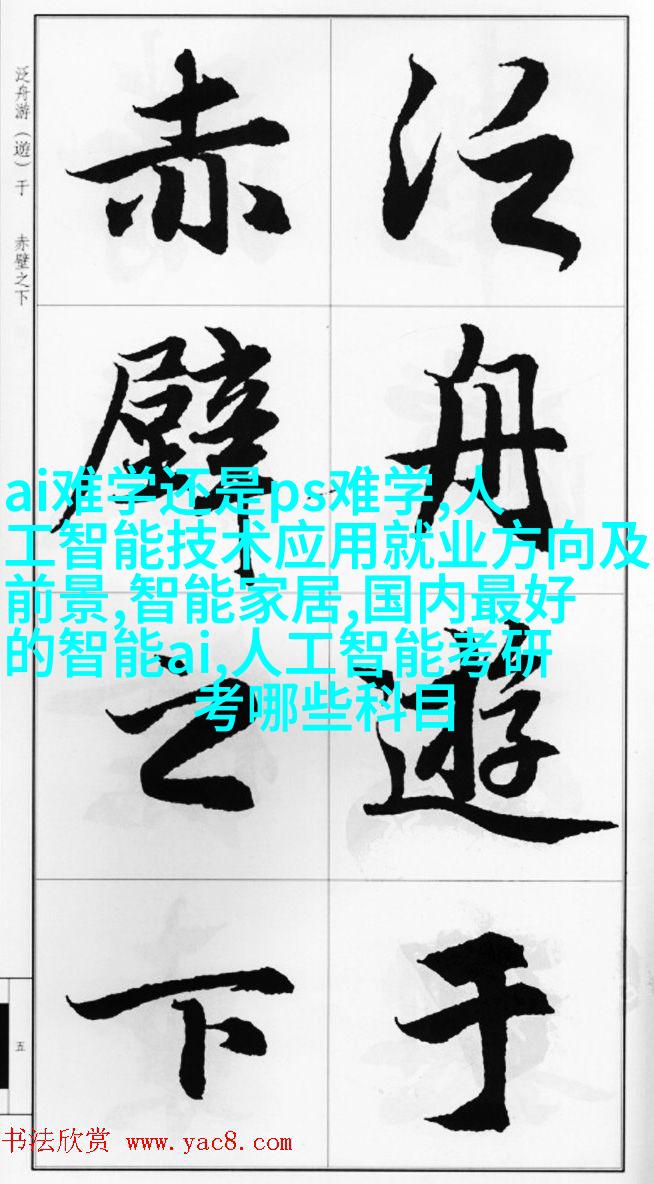 泛舟遊于
赤壁之下
泛舟游（遊）于　赤壁之下
ai难学还是ps难学,人
工智能技术应用就业方向及
前景,智能家居,国内最好
的智能ai,人工智能考研
考哪些科目
五
书法欣赏 www.yac8.com